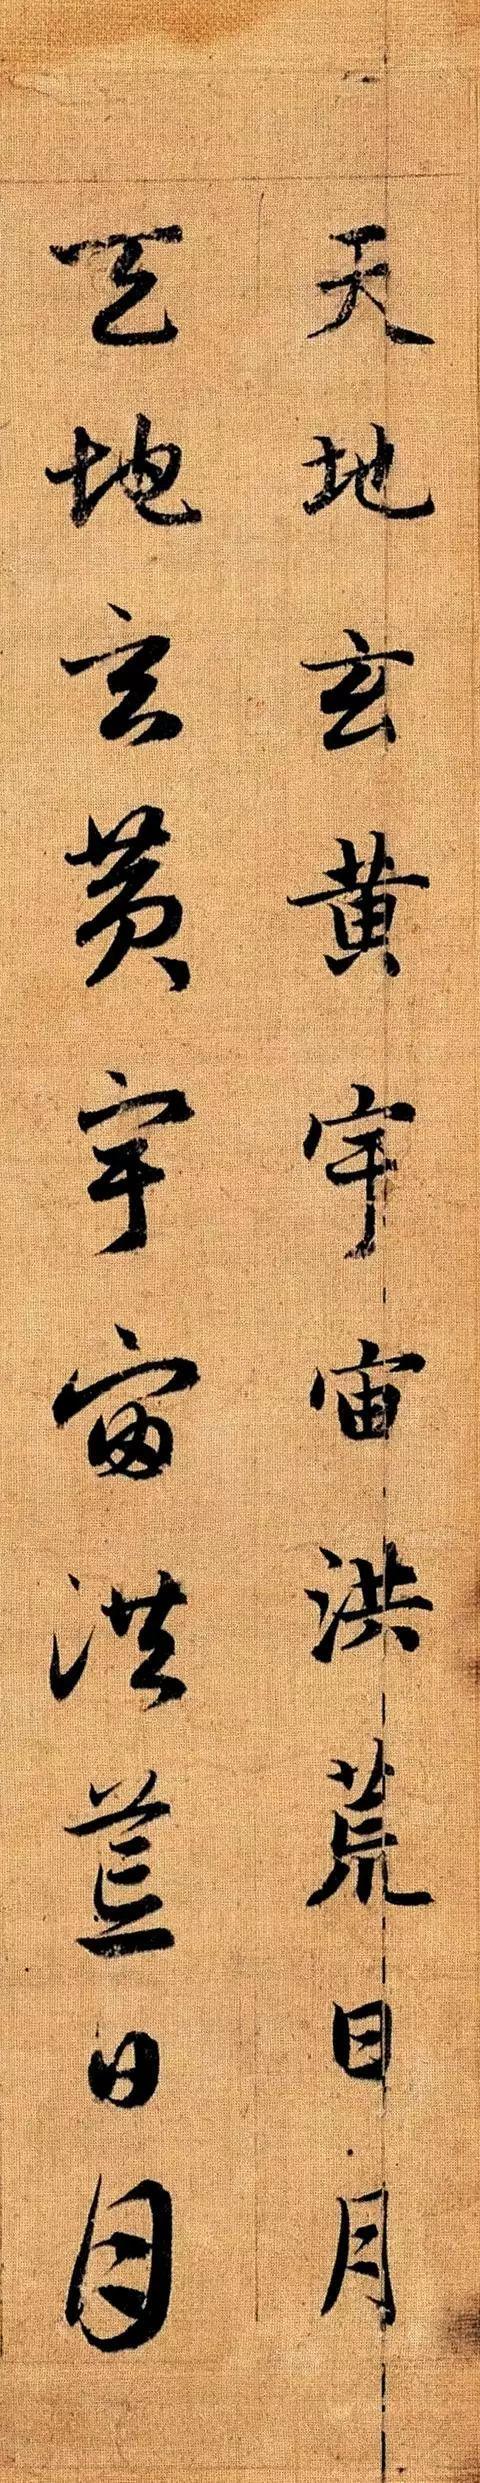 天地玄黄宇宙洪荒日月
天地玄黄宇宙洪荒日月